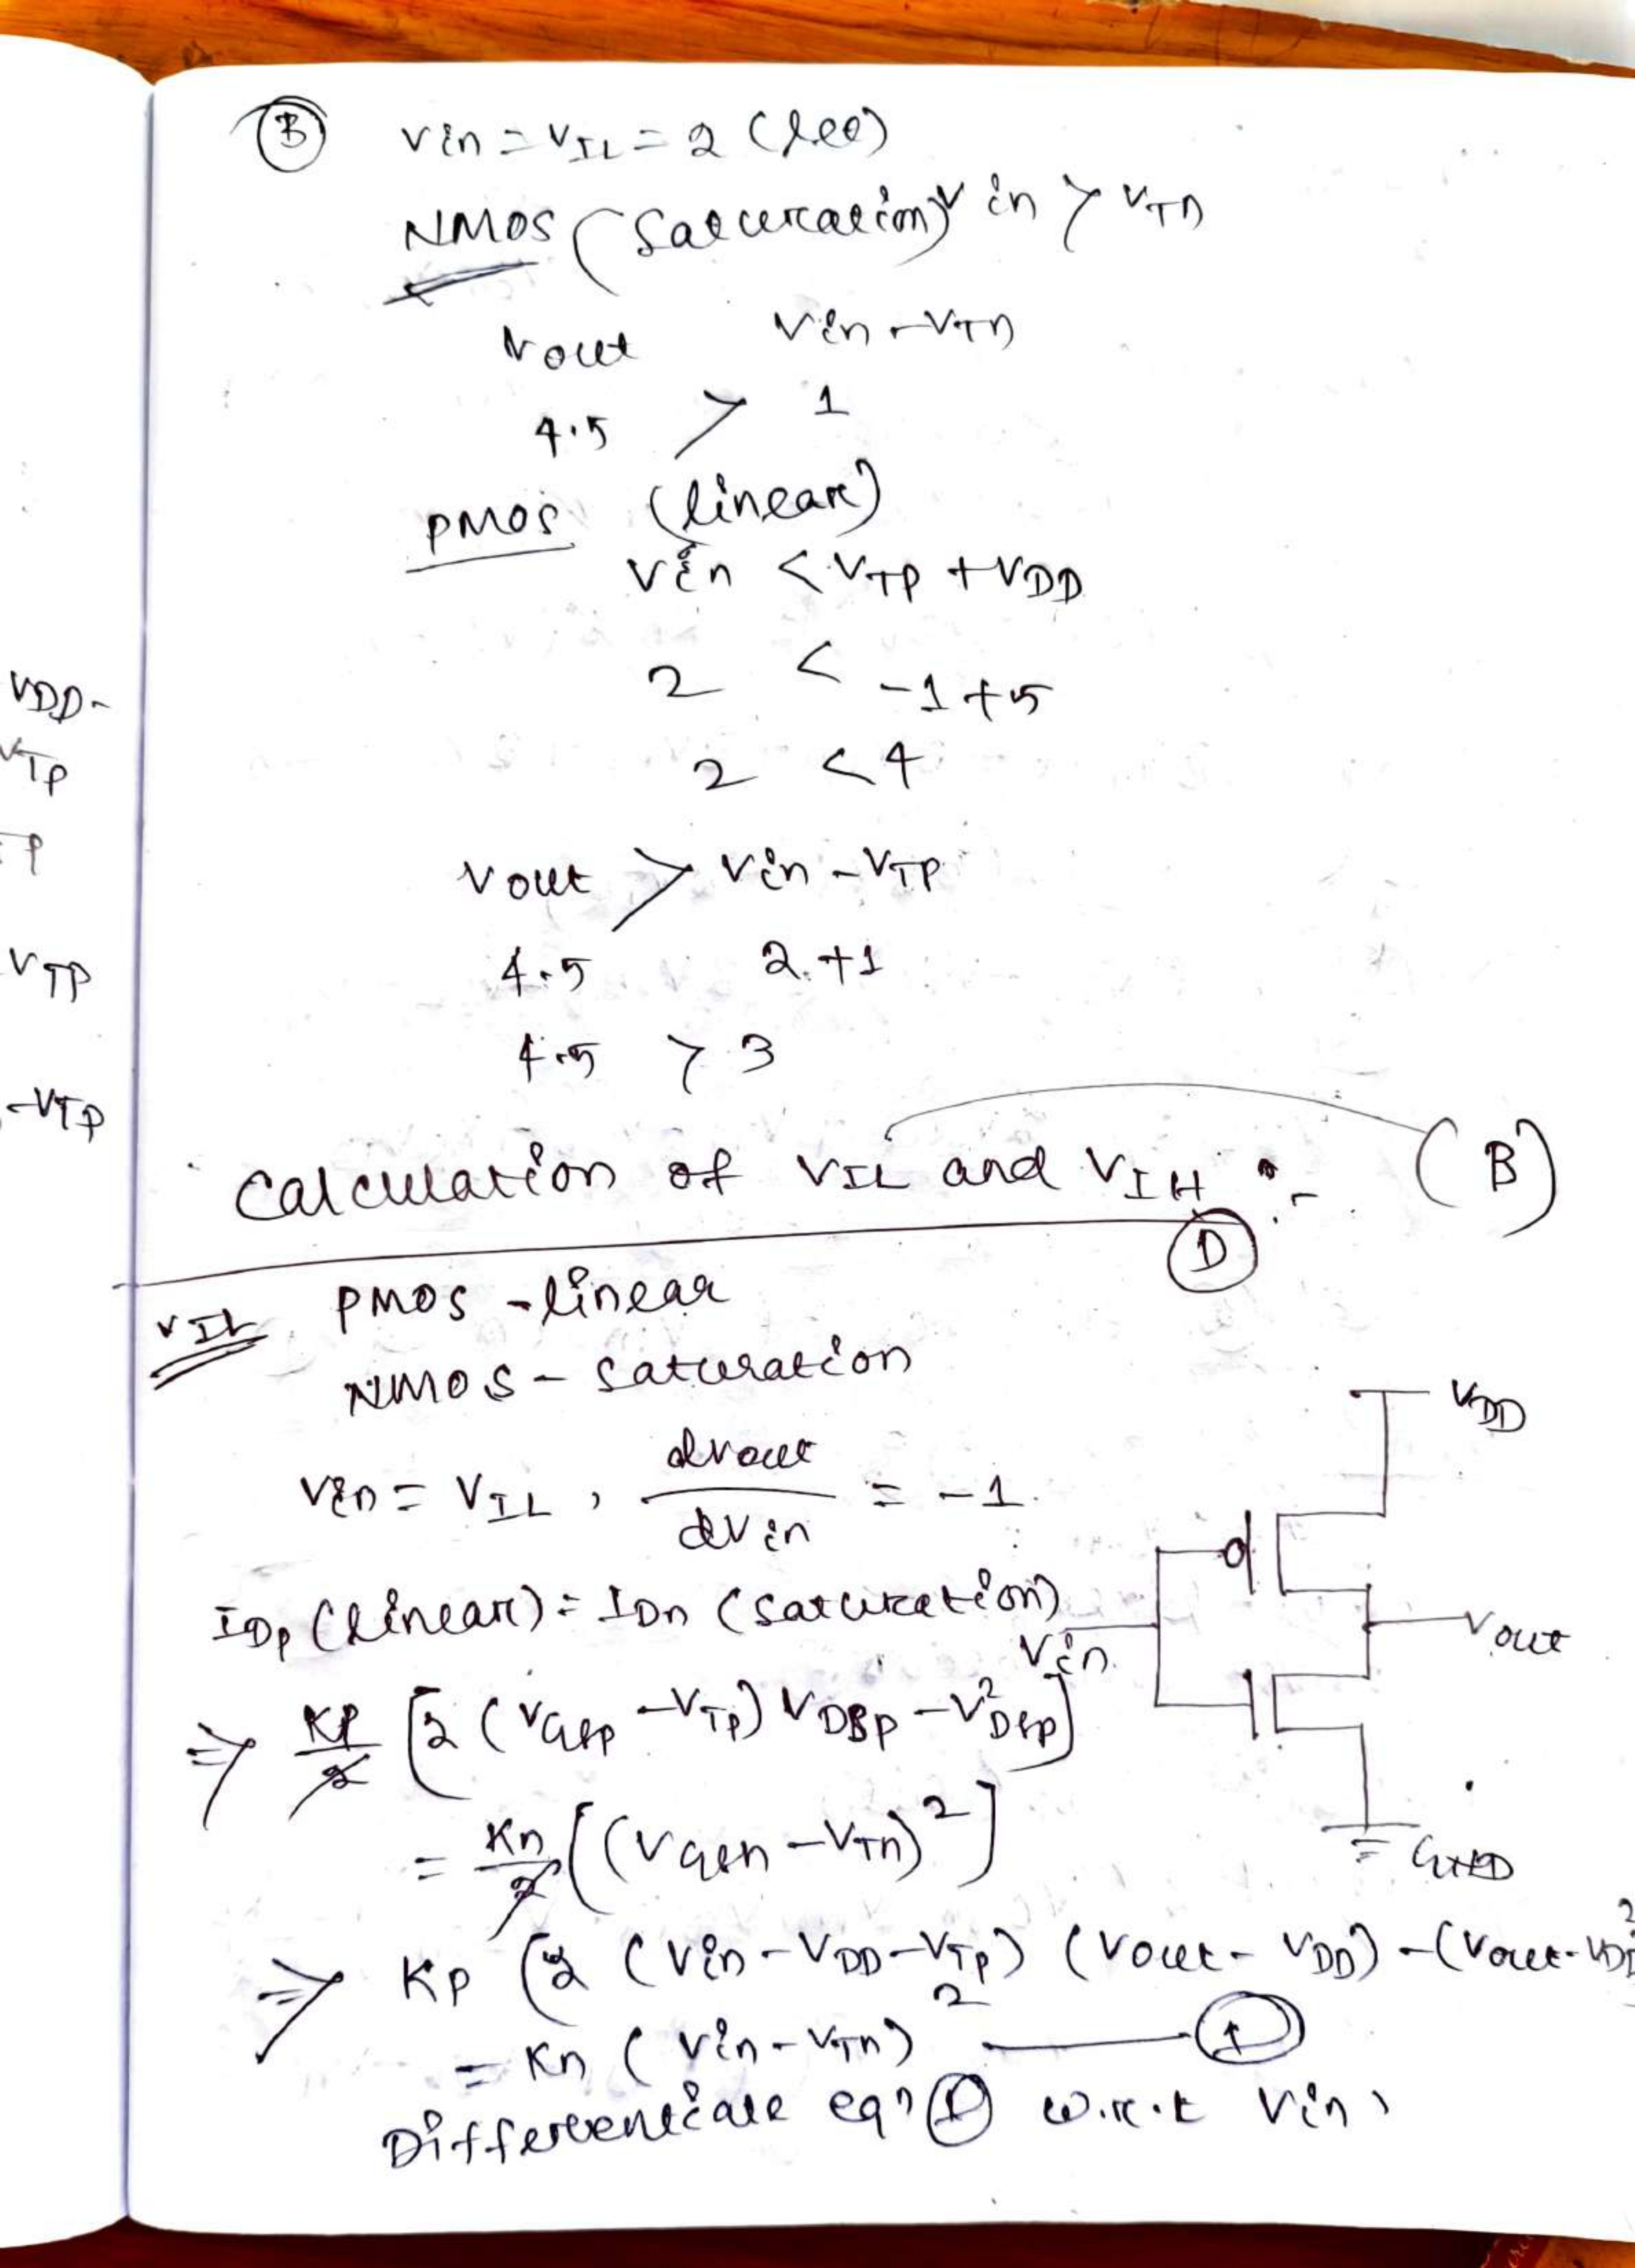 VDD-
VTP
P
VTP
-VTP
(B) Vin = VIL = 2 (let)
NMOS (Saturation) Vin > VTn
Vout Vin - VTn
4.5 > 1
PMOS (linear)
Vin < VTP + VDD
2 < -1+5
2 < 4
Vout > Vin - VTP
4.5 2.+1
4.5 > 3
Calculation of VIL and VIH :- (B)
(D)
VIL PMOS - linear
NMOS - Saturation
Vin = VIL, dvout/dvin = -1.
IDp (linear) = IDn (saturation)
⇒ KP/2 [2 (VGSp - VTp) VDSp - V²DSp]
= Kn/2 [(VGSn - VTn)²]
⇒ KP (2 (Vin - VDD - VTp) (Vout - VDD) - (Vout - VDD)²
= Kn (Vin - VTn)² — (1)
Differentiate eqn (1) w.r.t Vin,
VDD
Vin
Vout
GND